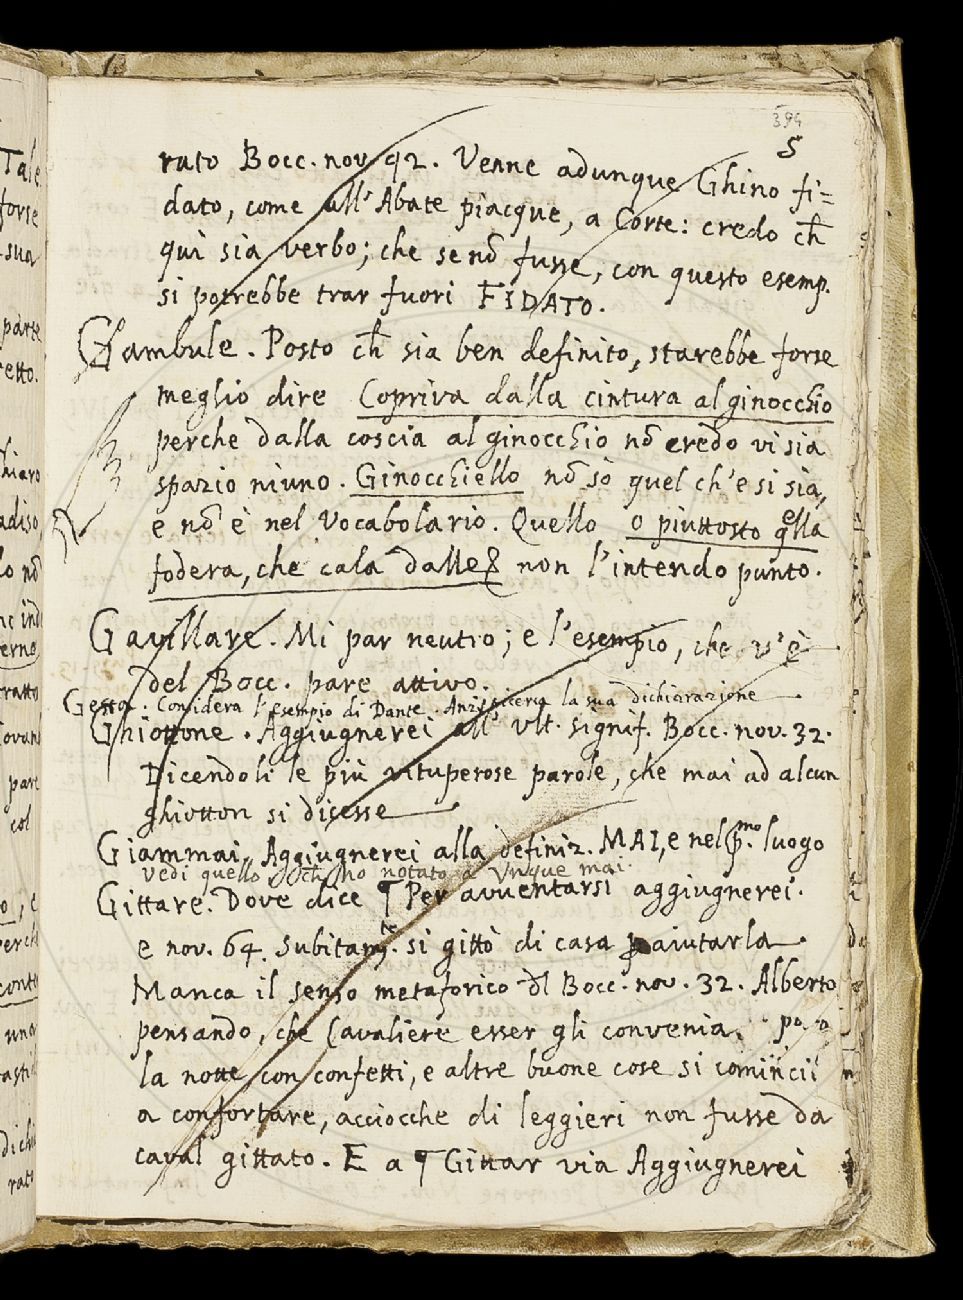 394
5
rato Bocc. nov. 92. Venne adunque Ghino fi=
dato, come all'Abate piacque, a Corte: credo ch̄
quì sia verbo; che se nō fusse, con questo esemp.
si potrebbe trar fuori FIDATO.
Gambule. Posto ch̄ sia ben definito, starebbe forse
meglio dire Copriva dalla cintura al ginocchio
perche dalla coscia al ginocchio nō credo vi sia
spazio niuno. Ginocchiello nō sò quel ch'e si sia,
e nō è nel Vocabolario. Quello o piuttosto qella
fodera, che cala dalle& non l'intendo punto.
Gavillare. Mi par neutro; e l'esempio, che v'è
del Bocc. pare attivo.
Gesta. Considera l'esempio di Dante. Anzi ricerca la sua dichiarazione
Ghiottone. Aggiugnerei all' vlt. signif. Bocc. nov. 32.
Dicendoli le più vituperose parole, che mai ad alcun
ghiotton si dicesse
Giammai. Aggiugnerei alla definiz. MAI, e nel pmo. luogo
vedi quello ch̄ ho notato a Unque mai.
Gittare. Dove dice ¶ Per avventarsi aggiugnerei.
e nov. 64. subitamte. si gittò di casa p aiutarla
Manca il senso metaforico dl Bocc. nov. 32. Alberto
pensando, che Cavaliere esser gli convenia,
la notte, con confetti, e altre buone cose si cominciò
a confortare, acciocche di leggieri non fusse da
caval gittato. E a ¶ Gittar via Aggiugnerei